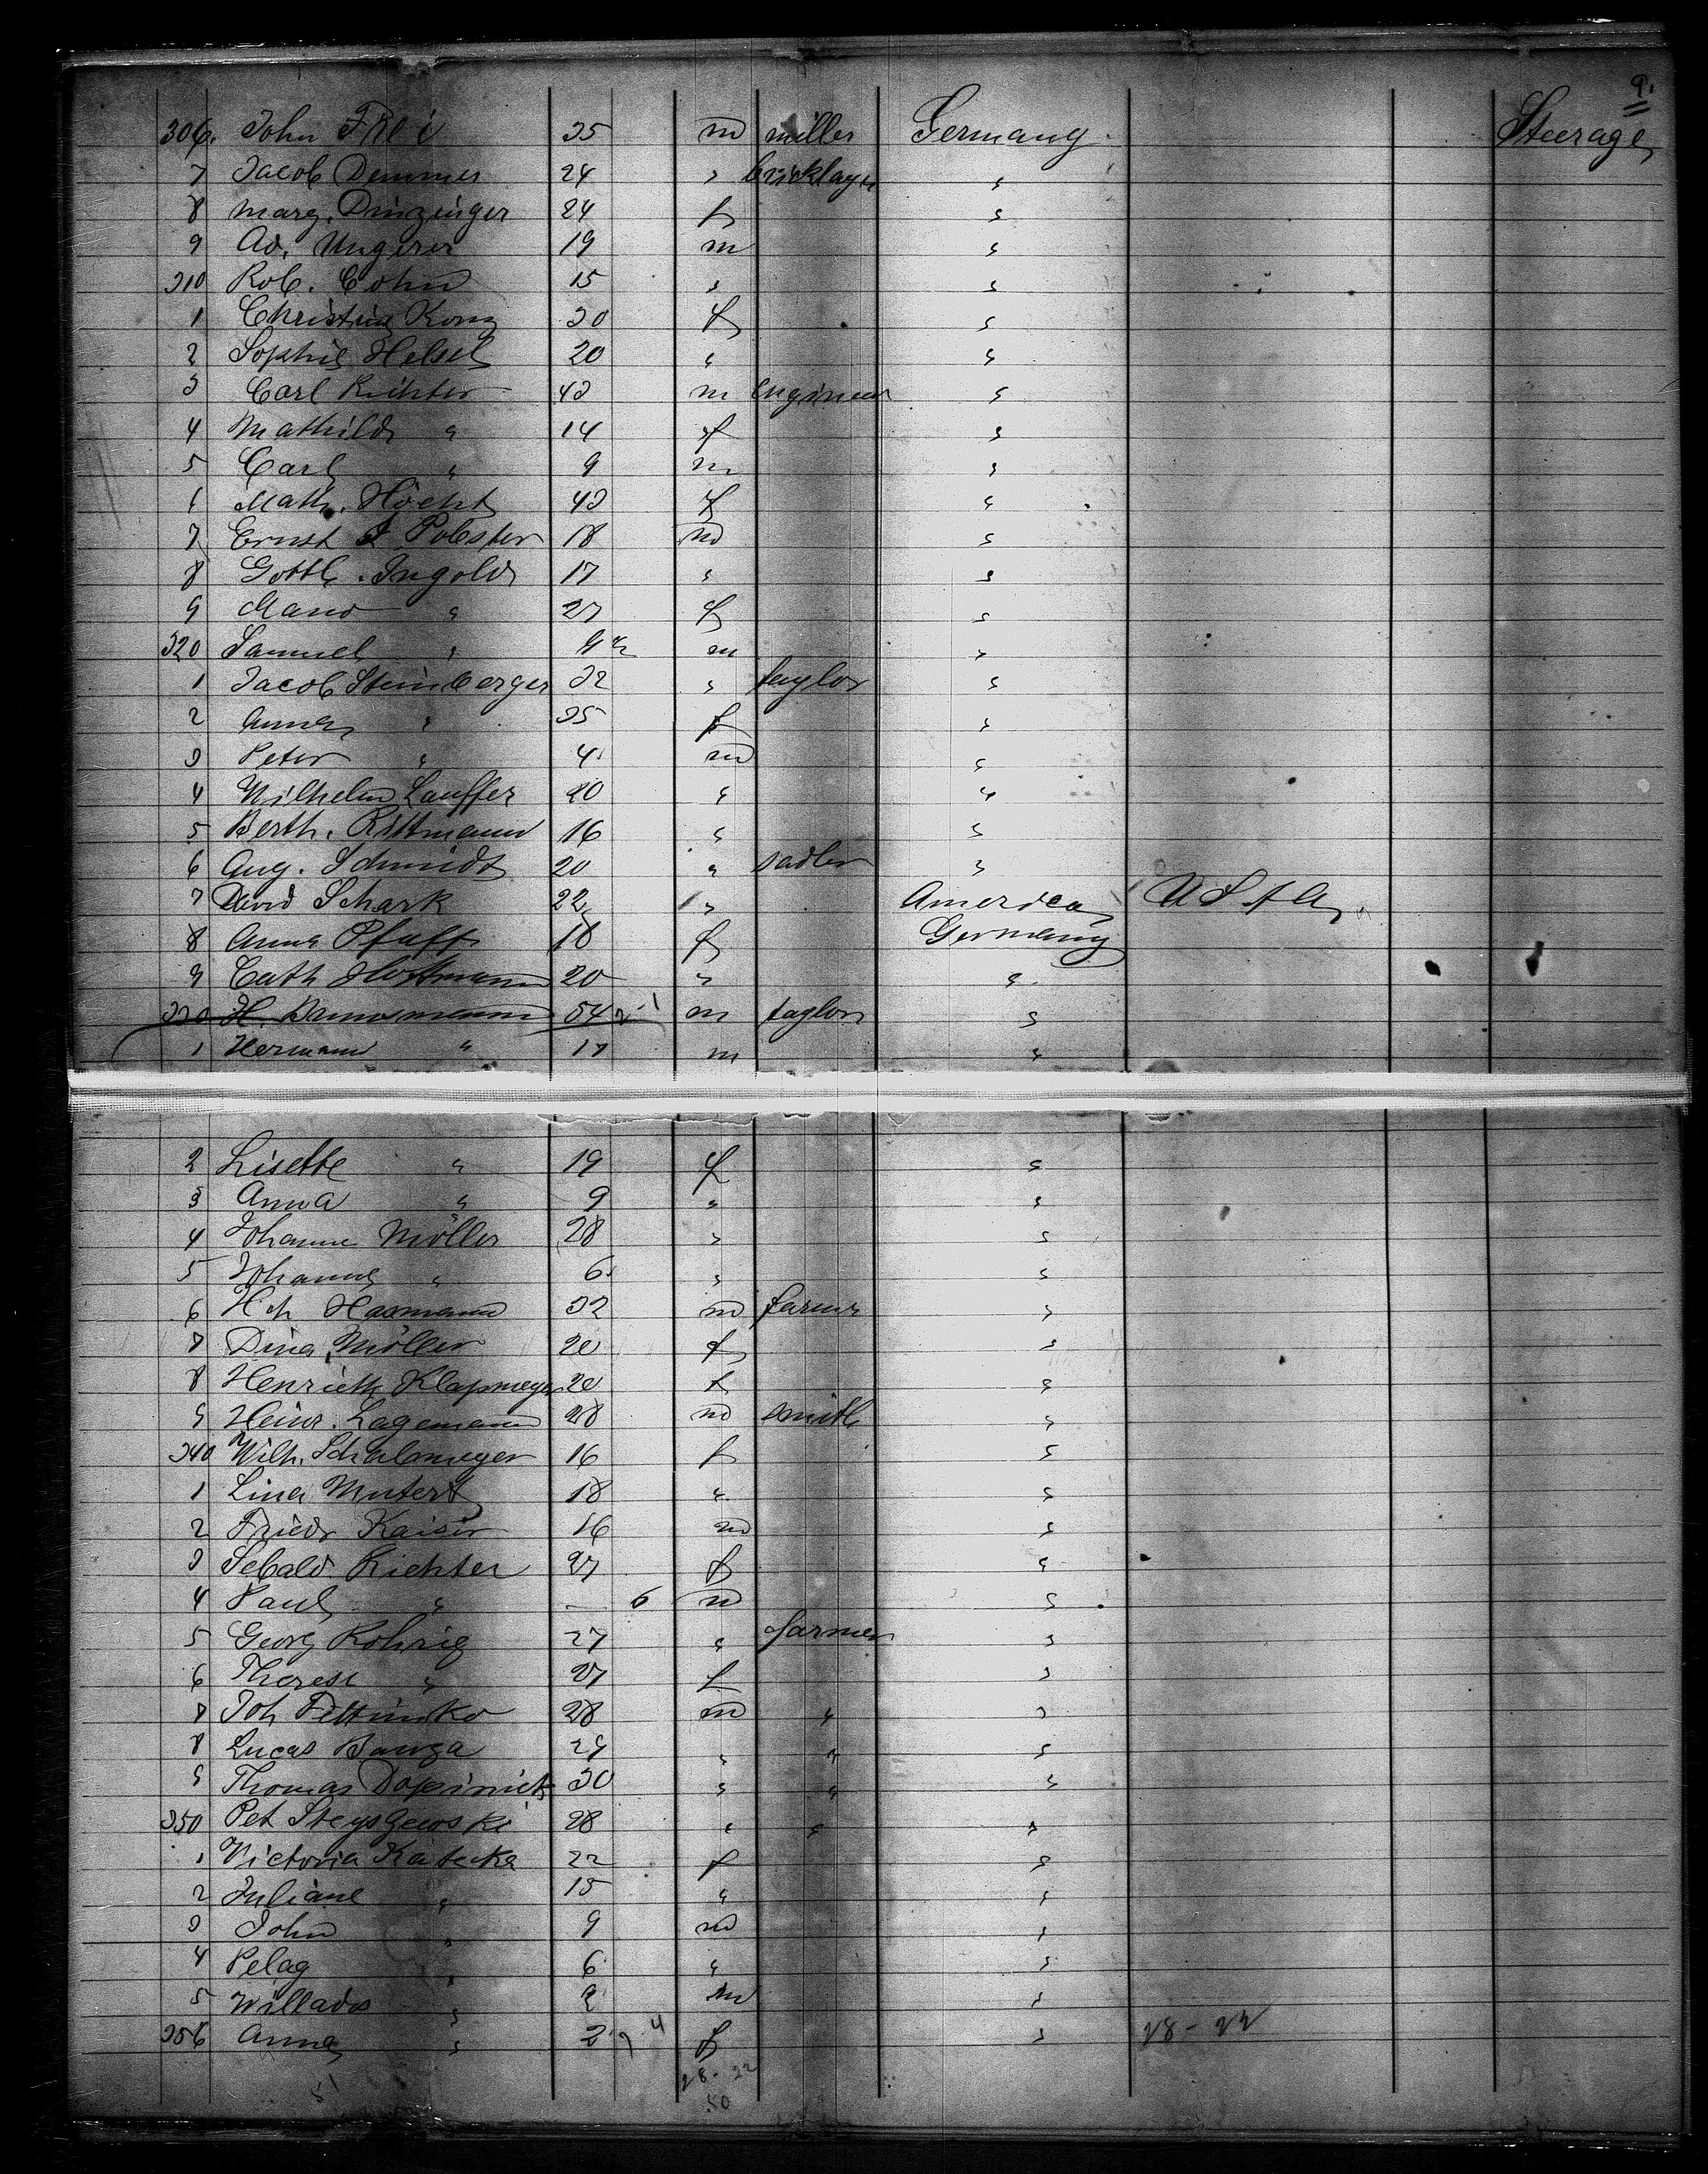 9.
306. John Frei 35 m miller Germany Steerage
7 Jacob Demmer 24 " bricklayer "
8 Marg. Dinzinger 24 f "
9 Ad. Ungerer 19 m "
310 Rob. Cohn 15 " "
1 Christine Konz 30 f "
2 Sophie Helsel 20 " "
3 Carl Richter 43 m engineer "
4 Mathild " 14 f "
5 Carl " 9 m "
6 Math. Höcht 43 f "
7 Ernst Pobster 18 m "
8 Gottl. Ingold 17 " "
9 " 27 f "
320 Samuel " 9 m "
1 Jacob Steinberger 32 " taylor "
2 Anna " 35 f "
3 Peter " 4 m "
4 Wilhelm Lauffer 20 " "
5 Berth. Rittmann 16 " "
6 Aug. Schmidt 20 " sadler "
7 David Schark 22 " America U S A
8 Anna Pfaff 18 f Germany
9 Cath Hoffmann 20 " "
330 H. 54 m taylor "
1 Hermann " 17 m "
2 Lisette " 19 f "
3 Anna " 9 " "
4 Johanne Möller 28 " "
5 Johanne " 6 " "
6 Hch Haxmann 32 m farmer "
7 Dina Möller 20 f "
8 Henrieth Klapmeyer 20 f "
9 Heinr. Lagemann 28 m smith "
340 Wilh. Schalomeyer 16 f "
1 Lina Mutert 18 " "
2 Friedr Kaiser 16 m "
3 Sebald Richter 27 f "
4 Paul " — 6 m "
5 Georg Röhrig 27 " farmer "
6 Therese " 27 f "
7 Joh Fettinko 28 m " "
8 Lucas Banza 29 " " "
9 Thomas 30 " " "
350 Pet 28 " " "
1 Victoria Katecka 22 f "
2 Juliane " 15 " "
3 John " 9 m "
4 Pelag " 6 " "
5 Willados " m "
356 Anna " 2 f " 28-22
28-22
51 50